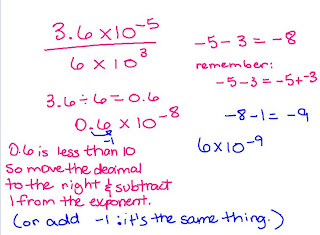 3.6 × 10⁻⁵
6 × 10³
-5 - 3 = -8
remember:
-5 - 3 = -5 + -3
3.6 ÷ 6 = 0.6
0.6 × 10⁻⁸
-1
-8 - 1 = -9
6 × 10⁻⁹
0.6 is less than 10
So move the decimal
to the right & subtract
1 from the exponent.
(or add -1: it's the same thing.)